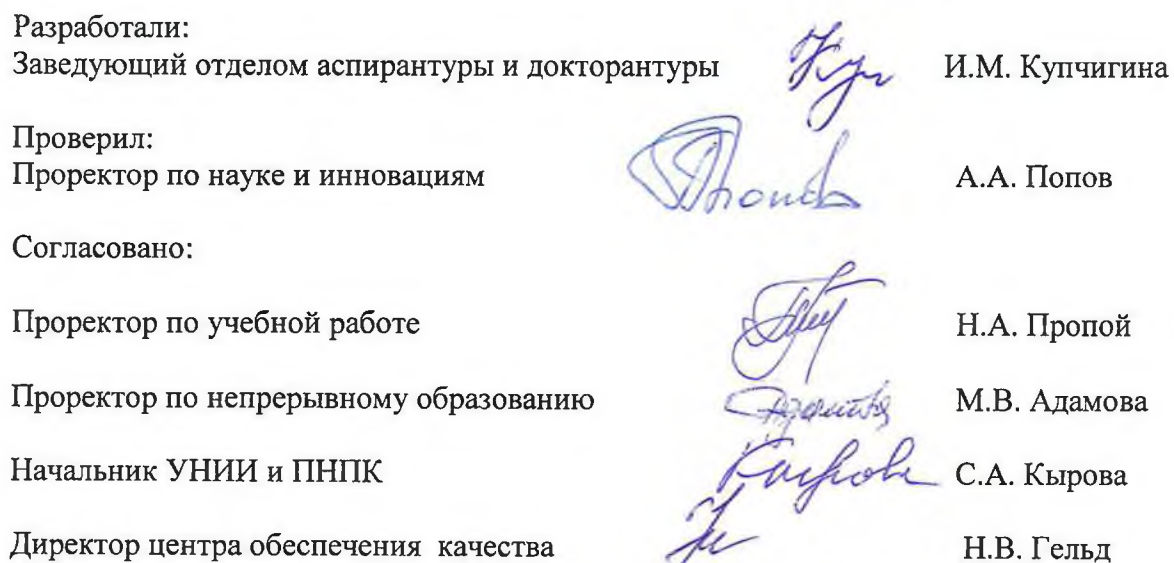 Разработали:
Заведующий отделом аспирантуры и докторантуры И.М. Купчигина
Проверил:
Проректор по науке и инновациям А.А. Попов
Согласовано:
Проректор по учебной работе Н.А. Пропой
Проректор по непрерывному образованию М.В. Адамова
Начальник УНИИ и ПНПК С.А. Кырова
Директор центра обеспечения качества Н.В. Гельд